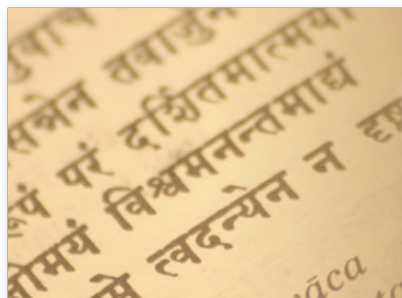 नुवाच
सन्नेन तवार्जुन
रूपं परं दर्शितमात्मयो
जोमयं विश्वमनन्तमाद्यं
मे त्वदन्येन न दृष्
vāca